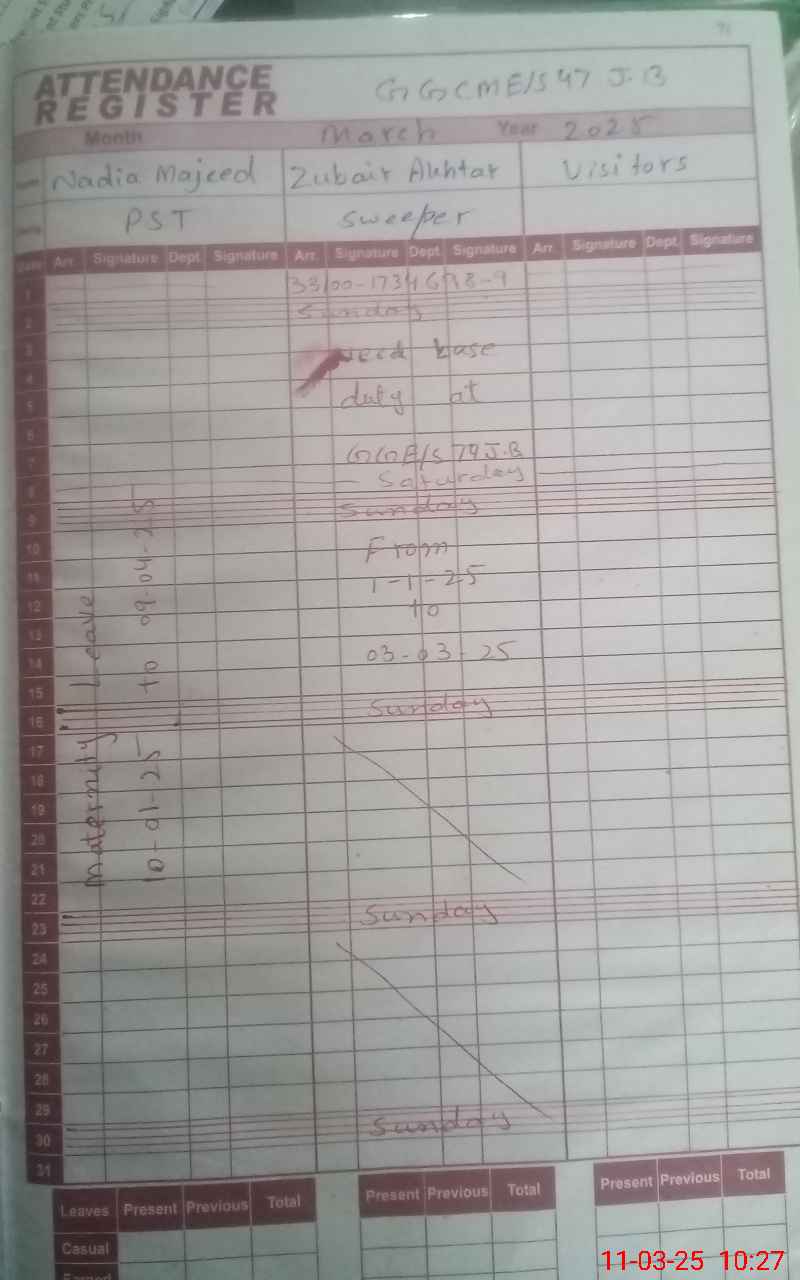 ATTENDANCE
REGISTER
GGCME/S 47 J.B
Month March Year 2025
Nadia Majeed Zubair Akhtar Visitors
PST Sweeper
Date Arr. Signature Dept. Signature Arr. Signature Dept. Signature Arr. Signature Dept. Signature
1
2 Sunday
3 need base
4
5 duty at
6
7 GGE/S 79 J.B
8 Saturday
9 Sunday
10 From
11 1-1-25
12 to
13
14 03-03-25
15
16 Sunday
17
18
19
20
21
22
23 Sunday
24
25
26
27
28
29
30 Sunday
31
Maternity Leave
10-01-25 to 09-04-25
Leaves Present Previous Total Present Previous Total Present Previous Total
Casual
Earned
11-03-25 10:27